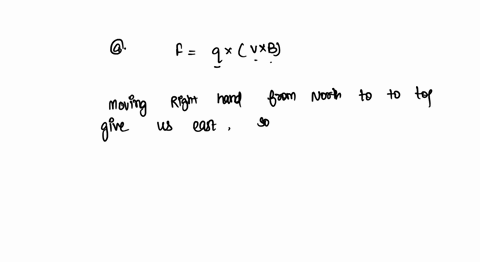 a. F = q × ( V × B )
moving Right hand from North to to top
give us east, so